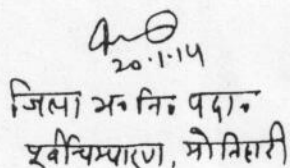 20.1.14
जिला भ॰ नि॰ पदा॰
पूर्वी चम्पारण, मोतिहारी